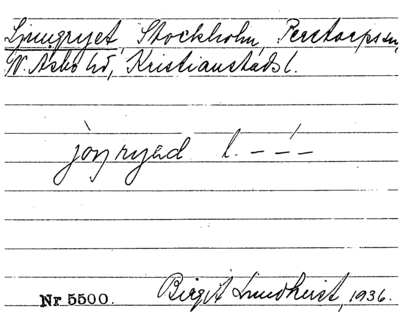 Ljungryet, Stockholm, Perstorps sn,
N. Åsbo hd, Kristianstads l.
jòŋryed l. – –́ –
Nr 5500. Birgit Lundkvist, 1936.